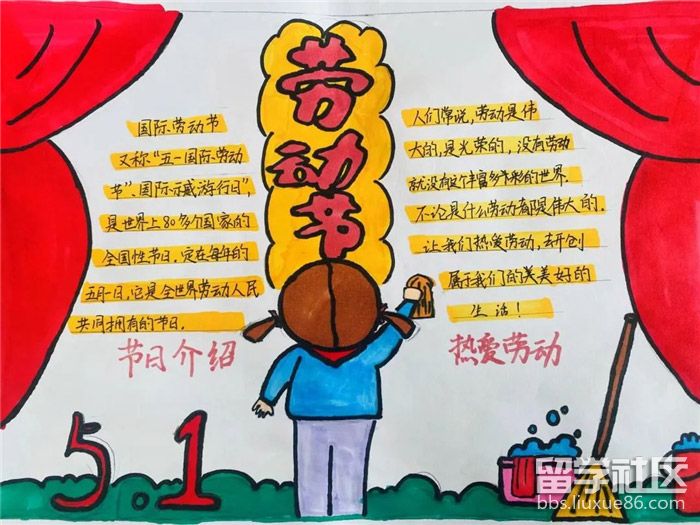 劳动节
国际劳动节
又称“五一国际劳动
节”、国际示威游行日”,
是世界上80多个国家的
全国性节日,定在每年的
五月一日,它是全世界劳动人民
共同拥有的节日.
节日介绍
人们常说,劳动是伟
大的,是光荣的,没有劳动
就没有这个丰富多彩的世界.
不论是什么劳动都是伟大的.
让我们热爱劳动,去开创
属于我们的美好的
生活!
热爱劳动
5.1
留学社区
bbs.liuxue86.com